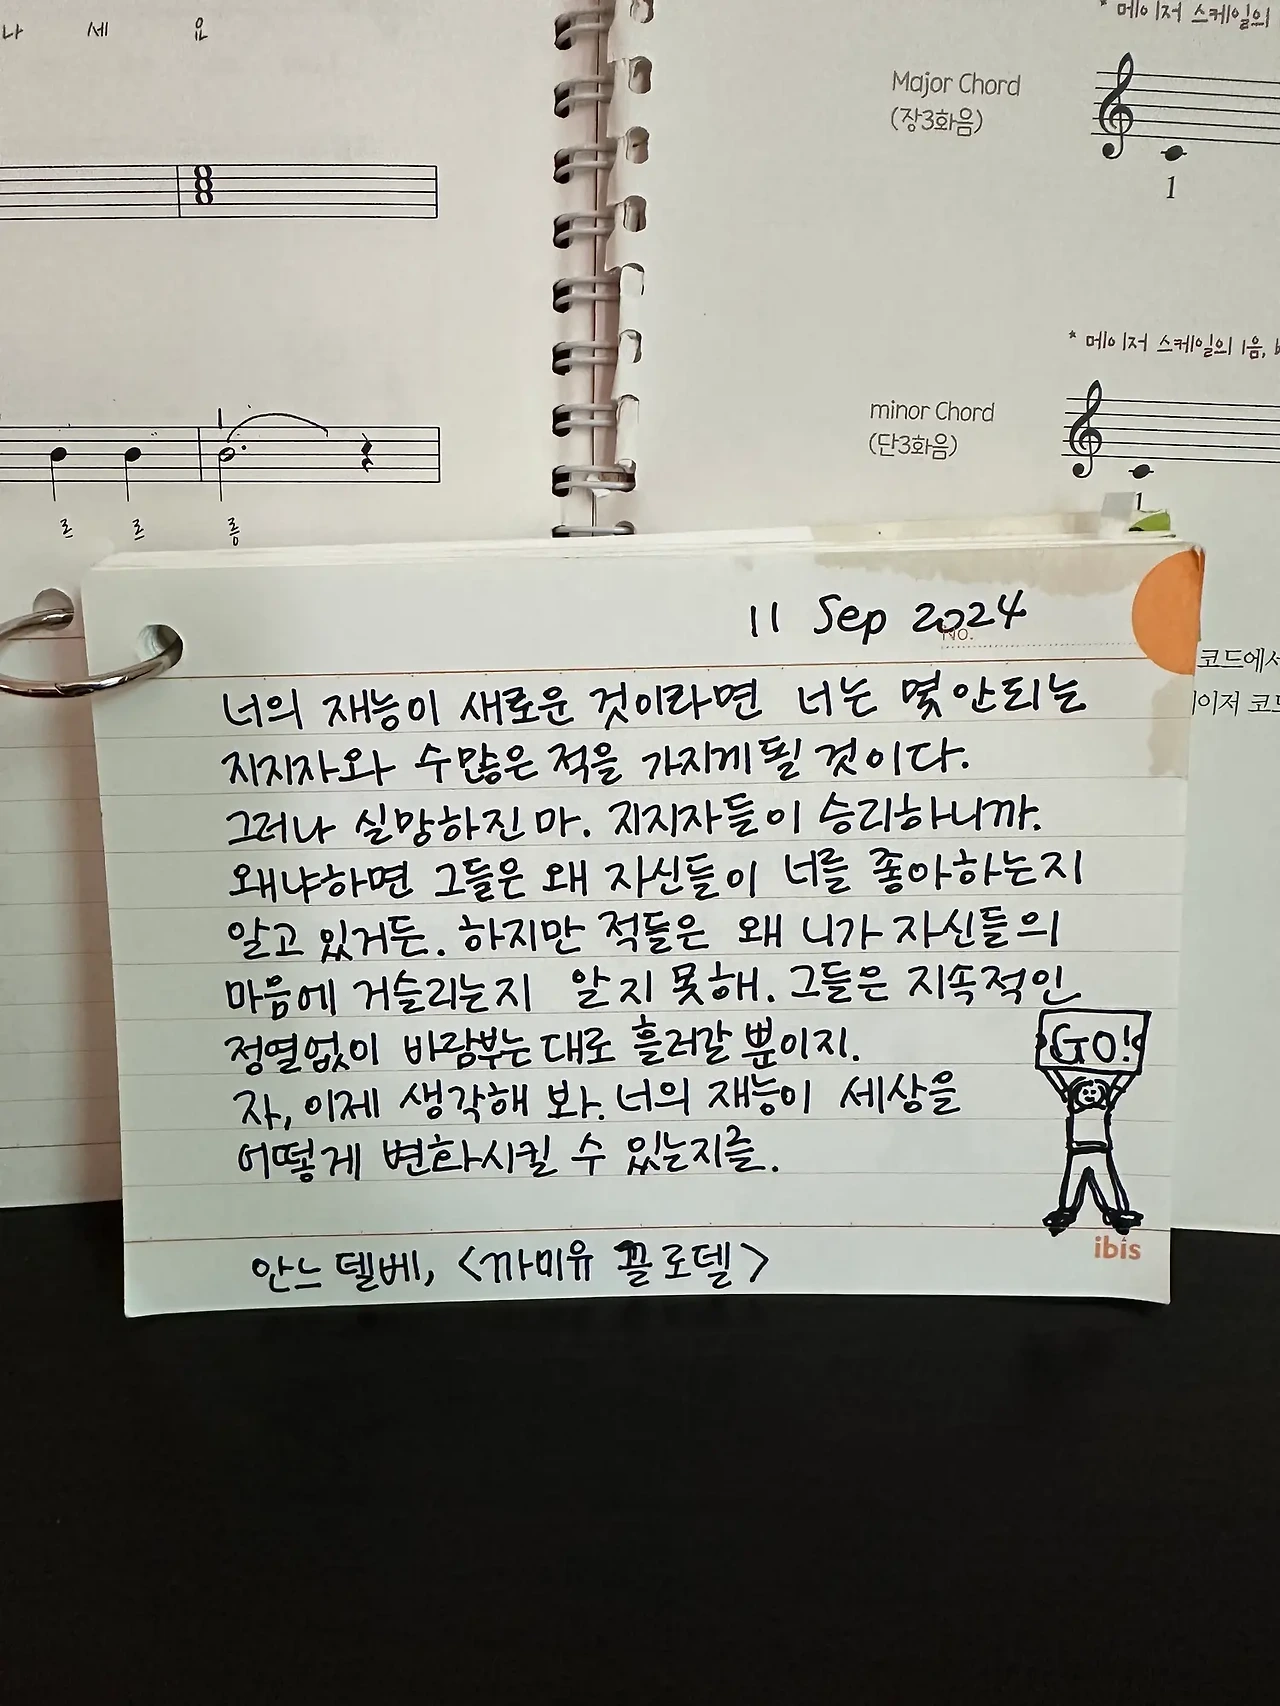 나 세 요
* 메이저 스케일의
Major Chord
(장3화음)
1
8
8
* 메이저 스케일의 1음,
minor Chord
(단3화음)
1
르 르 릉
11 Sep 2024
No.
코드에서
이저 코드
너의 재능이 새로운 것이라면 너는 몇 안되는
지지자와 수많은 적을 가지게 될 것이다.
그러나 실망하진 마. 지지자들이 승리하니까.
왜냐하면 그들은 왜 자신들이 너를 좋아하는지
알고 있거든. 하지만 적들은 왜 니가 자신들의
마음에 거슬리는지 알지 못해. 그들은 지속적인
정열없이 바람부는 대로 흘러갈 뿐이지.
자, 이제 생각해 봐. 너의 재능이 세상을
어떻게 변화시킬 수 있는지를.
GO!
ibis
안느 델베, <까미유 끌로델>